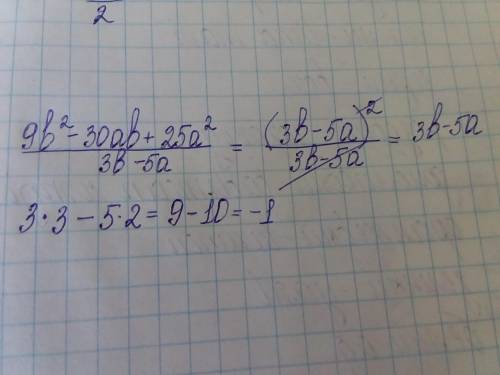 2
(9b² - 30ab + 25a²)/(3b - 5a) = (3b - 5a)²/(3b - 5a) = 3b - 5a
3·3 - 5·2 = 9 - 10 = -1